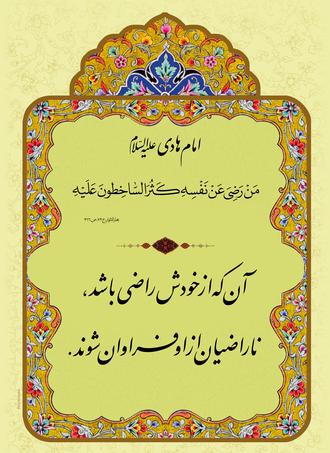 امام هادی علیه‌السلام
مَنْ رَضِیَ عَنْ نَفْسِهِ کَثُرَ السّاخِطونَ عَلَیْهِ
آن که از خودش راضی باشد،
ناراضیان از او فراوان شوند.